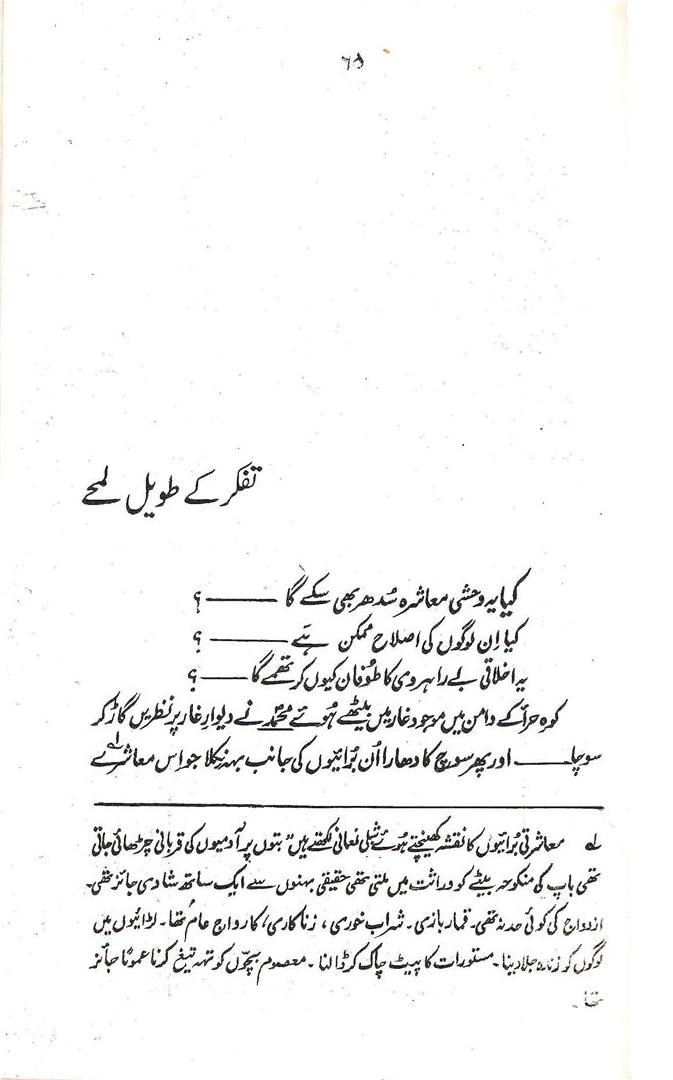 ۶۵
تفکر کے طویل لمحے
کیا یہ وحشی معاشرہ سُدھر بھی سکے گا ——— ؟
کیا اِن لوگوں کی اصلاح ممکن ہے ——— ؟
یہ اخلاقی بے راہروی کا طُوفان کیوں کر تھمے گا ——— ؟
کوہ حرأ کے دامن میں موجود غار میں بیٹھے ہُوئے محمدؐ نے دیوارِ غار پر نظریں گاڑ کر
سوچا ——— اور پھر سوچ کا دھارا اُن بُرائیوں کی جانب بہہ نکلا جو اِس معاشرے
لہ معاشرتی بُرائیوں کا نقشہ کھینچتے ہُوئے شبلی نعمانی لکھتے ہیں "بتوں پر آدمیوں کی قربانی چڑھائی جاتی
تھی باپ کی منکوحہ بیٹے کو وراثت میں ملتی تھی حقیقی بہنوں سے ایک ساتھ شادی جائز تھی۔
ازدواج کی کوئی حد نہ تھی۔ قمار بازی۔ شراب خوری، زنا کاری کا رواج عام تھا۔ لڑائیوں میں
لوگوں کو زندہ جلا دینا۔ مستورات کا پیٹ چاک کر ڈالنا۔ معصوم بچّوں کو تہہ تیغ کرنا عموماً جائز
تھا۔